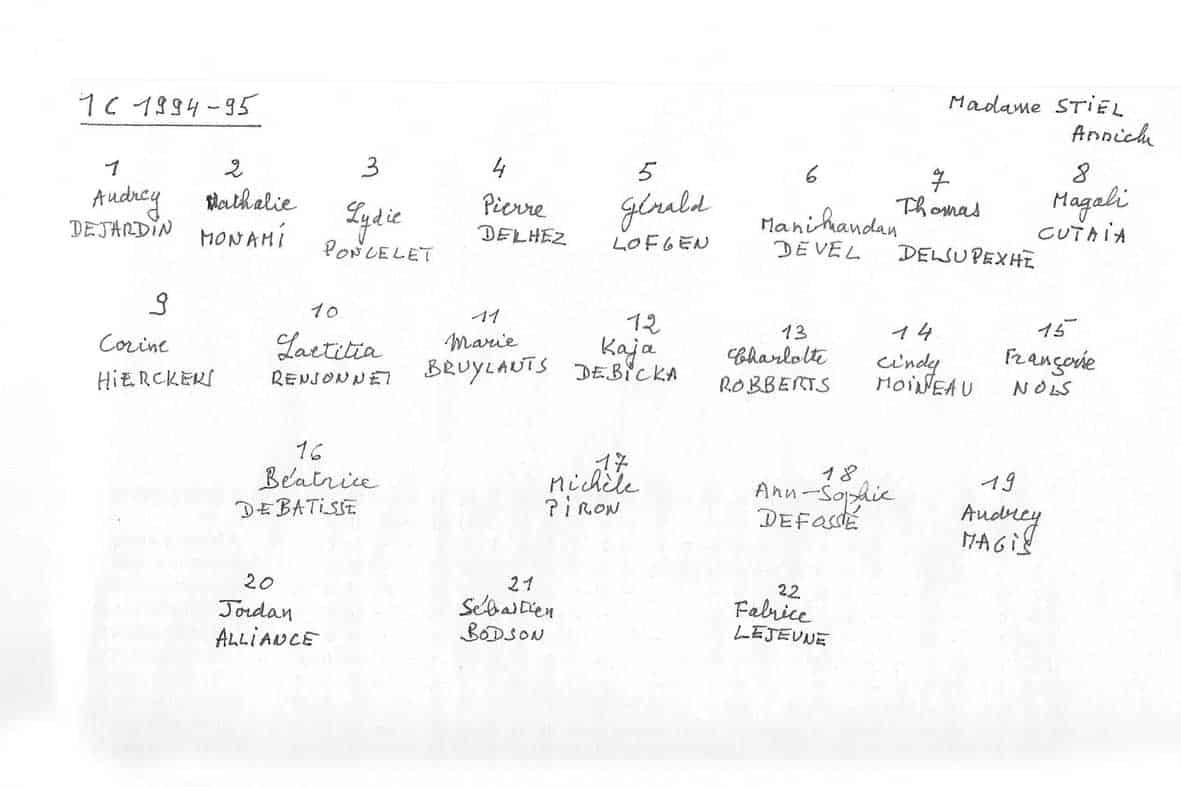 1C 1994-95
Madame STIEL
Annick
1 2 3 4 5 6 7 8
Audrey Nathalie Lydie Pierre Gérald Manikandan Thomas Magali
DEJARDIN MONAMI PONCELET DELHEZ LOFGEN DEVEL DELSUPEXHE CUTAIA
9 10 11 12 13 14 15
Corine Laetitia Marie Kaja Charlotte Cindy Françoise
HIERCKENS RENSONNET BRUYLANTS DEBICKA ROBBERTS MOINEAU NOLS
16 17 18 19
Béatrice Michèle Ann-Sophie Audrey
DEBATISSE PIRON DEFOSSÉ MAGIS
20 21 22
Jordan Sébastien Fabrice
ALLIANCE BODSON LEJEUNE